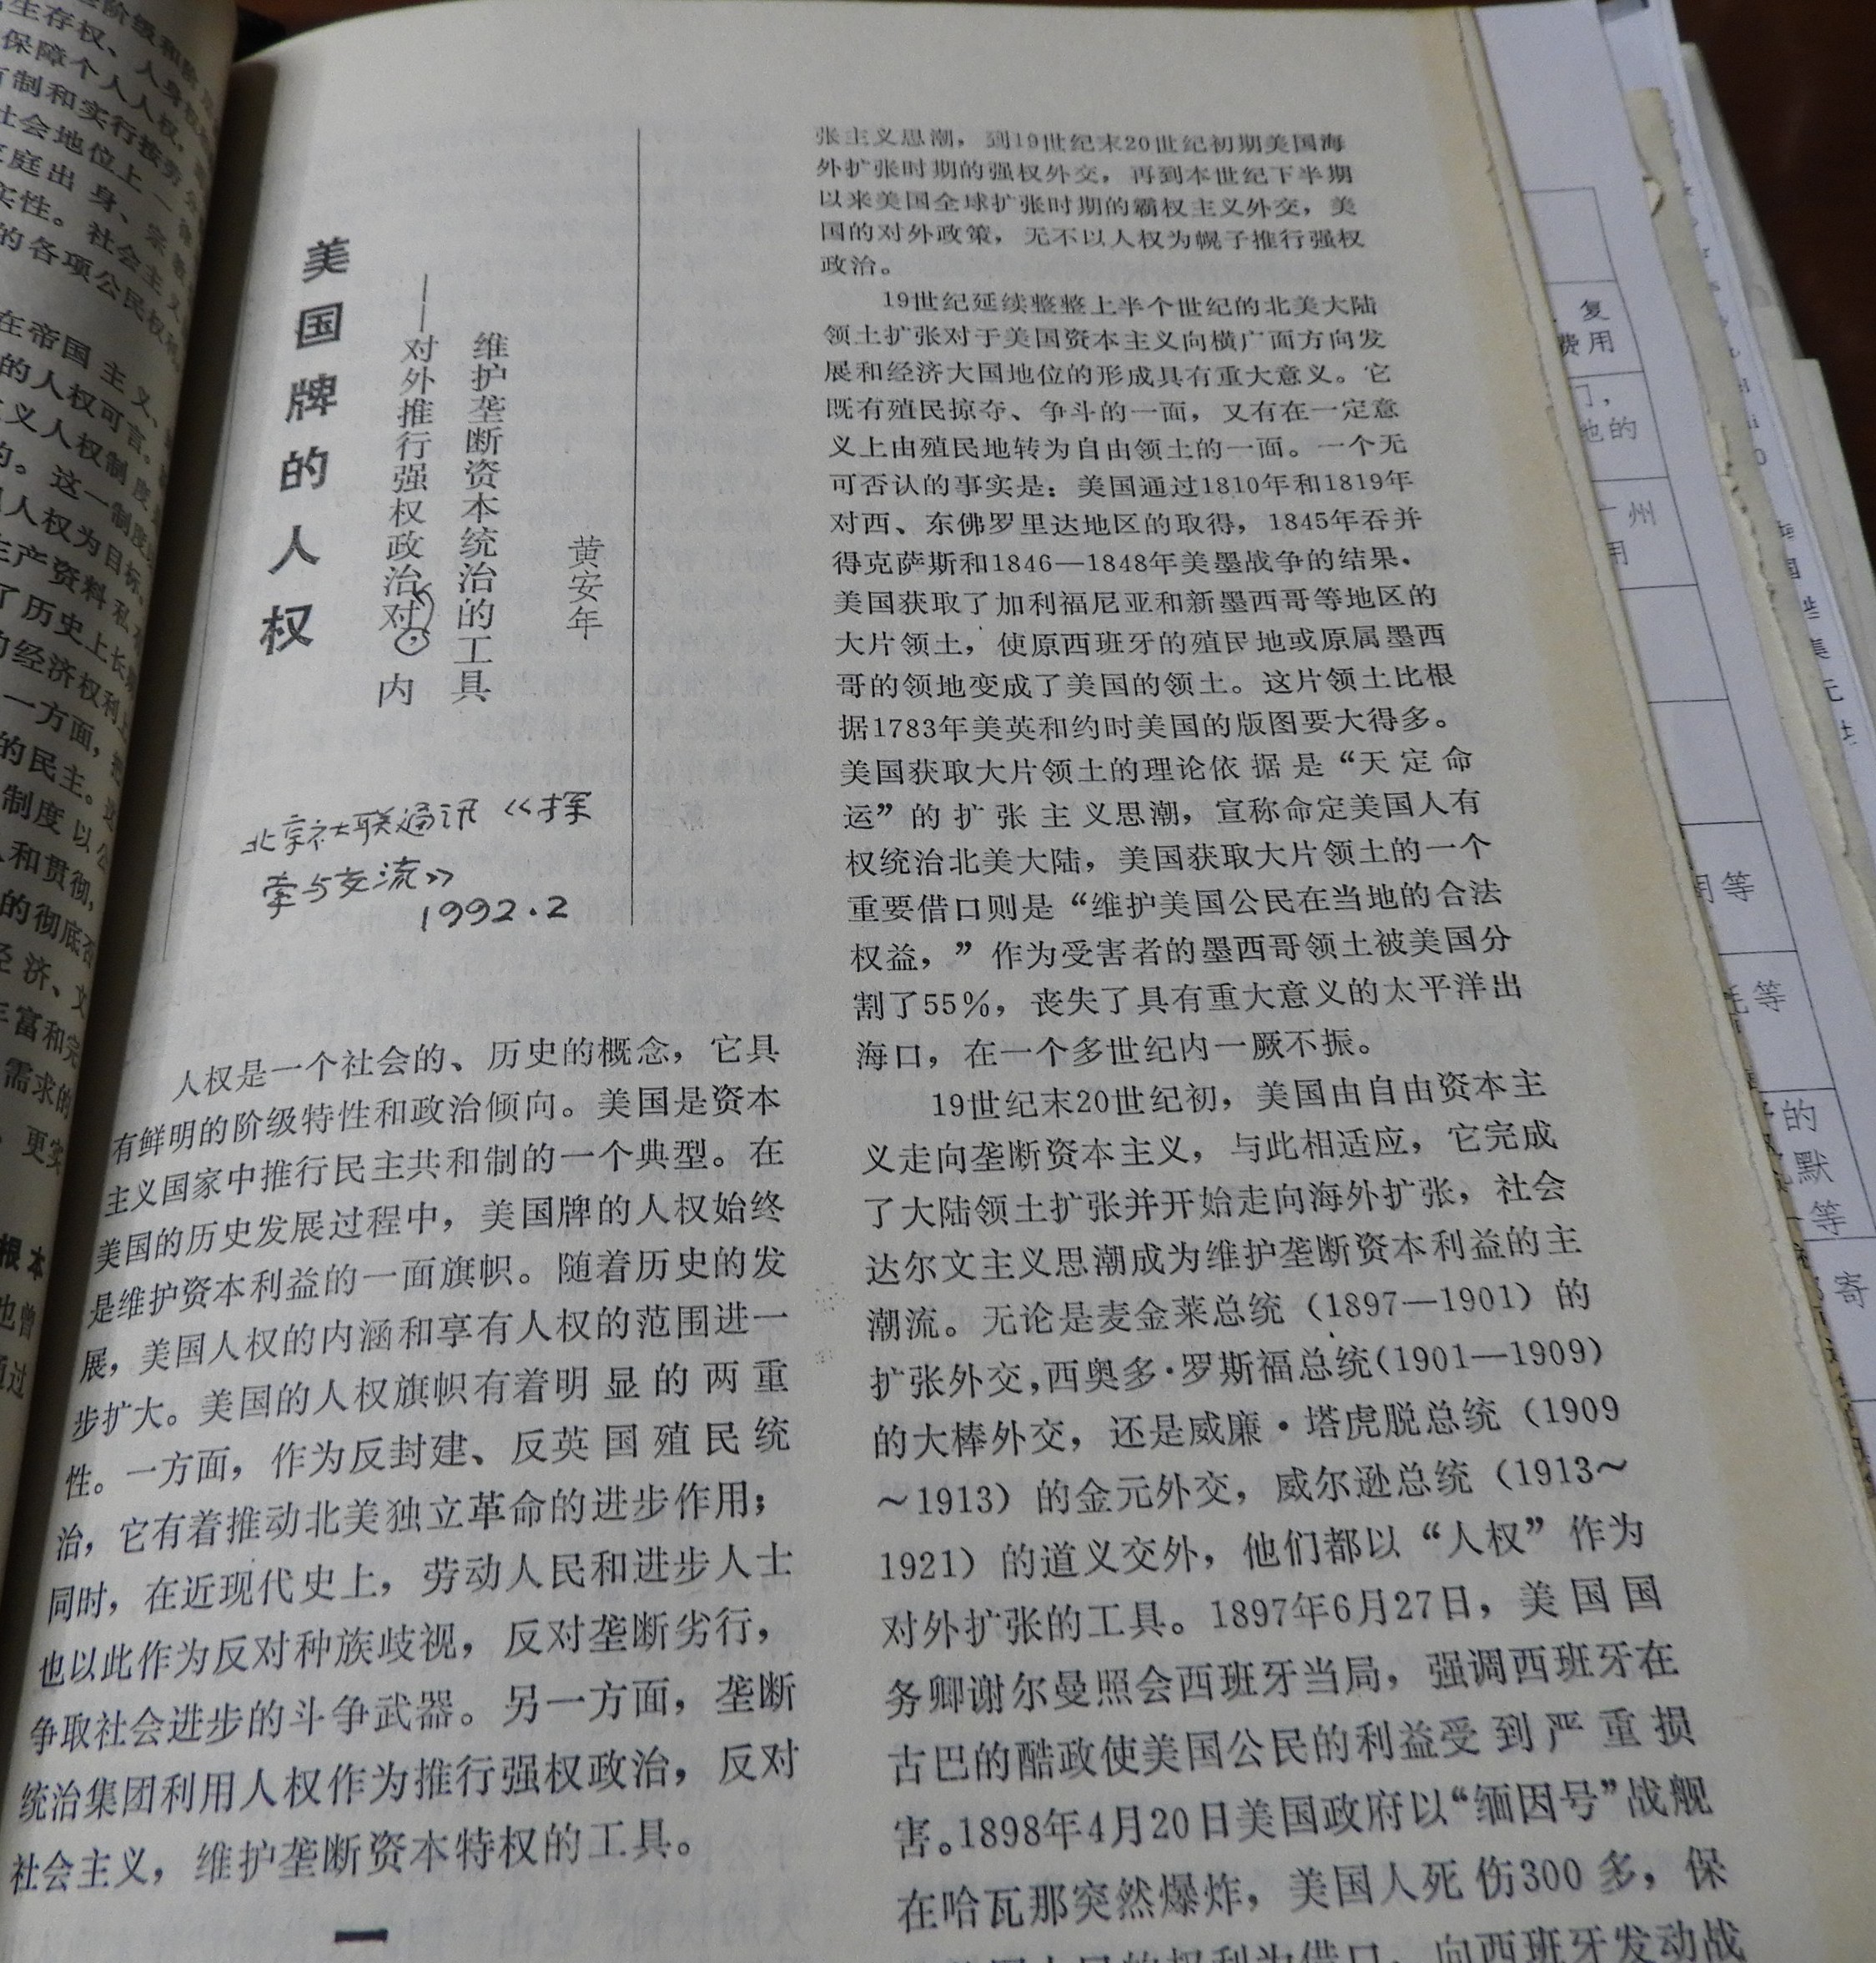 美国牌的人权
——对外推行强权政治对内
维护垄断资本统治的工具
黄安年
北京社联通讯《探
索与交流》
1992.2
人权是一个社会的、历史的概念，它具
有鲜明的阶级特性和政治倾向。美国是资本
主义国家中推行民主共和制的一个典型。在
美国的历史发展过程中，美国牌的人权始终
是维护资本利益的一面旗帜。随着历史的发
展，美国人权的内涵和享有人权的范围进一
步扩大。美国的人权旗帜有着明显的两重
性。一方面，作为反封建、反英国殖民统
治，它有着推动北美独立革命的进步作用；
同时，在近现代史上，劳动人民和进步人士
也以此作为反对种族歧视，反对垄断劣行，
争取社会进步的斗争武器。另一方面，垄断
统治集团利用人权作为推行强权政治，反对
社会主义，维护垄断资本特权的工具。
一
张主义思潮，到19世纪末20世纪初期美国海
外扩张时期的强权外交，再到本世纪下半期
以来美国全球扩张时期的霸权主义外交，美
国的对外政策，无不以人权为幌子推行强权
政治。
19世纪延续整整上半个世纪的北美大陆
领土扩张对于美国资本主义向横广面方向发
展和经济大国地位的形成具有重大意义。它
既有殖民掠夺、争斗的一面，又有在一定意
义上由殖民地转为自由领土的一面。一个无
可否认的事实是：美国通过1810年和1819年
对西、东佛罗里达地区的取得，1845年吞并
得克萨斯和1846—1848年美墨战争的结果．
美国获取了加利福尼亚和新墨西哥等地区的
大片领土，使原西班牙的殖民地或原属墨西
哥的领地变成了美国的领土。这片领土比根
据1783年美英和约时美国的版图要大得多。
美国获取大片领土的理论依据是“天定命
运”的扩张主义思潮，宣称命定美国人有
权统治北美大陆，美国获取大片领土的一个
重要借口则是“维护美国公民在当地的合法
权益，”作为受害者的墨西哥领土被美国分
割了55%，丧失了具有重大意义的太平洋出
海口，在一个多世纪内一厥不振。
19世纪末20世纪初，美国由自由资本主
义走向垄断资本主义，与此相适应，它完成
了大陆领土扩张并开始走向海外扩张，社会
达尔文主义思潮成为维护垄断资本利益的主
潮流。无论是麦金莱总统（1897—1901）的
扩张外交，西奥多·罗斯福总统（1901—1909）
的大棒外交，还是威廉·塔虎脱总统（1909
～1913）的金元外交，威尔逊总统（1913～
1921）的道义交外，他们都以“人权”作为
对外扩张的工具。1897年6月27日，美国国
务卿谢尔曼照会西班牙当局，强调西班牙在
古巴的酷政使美国公民的利益受到严重损
害。1898年4月20日美国政府以“缅因号”战舰
在哈瓦那突然爆炸，美国人死伤300多，保
人民的权利为借口，向西班牙发动战